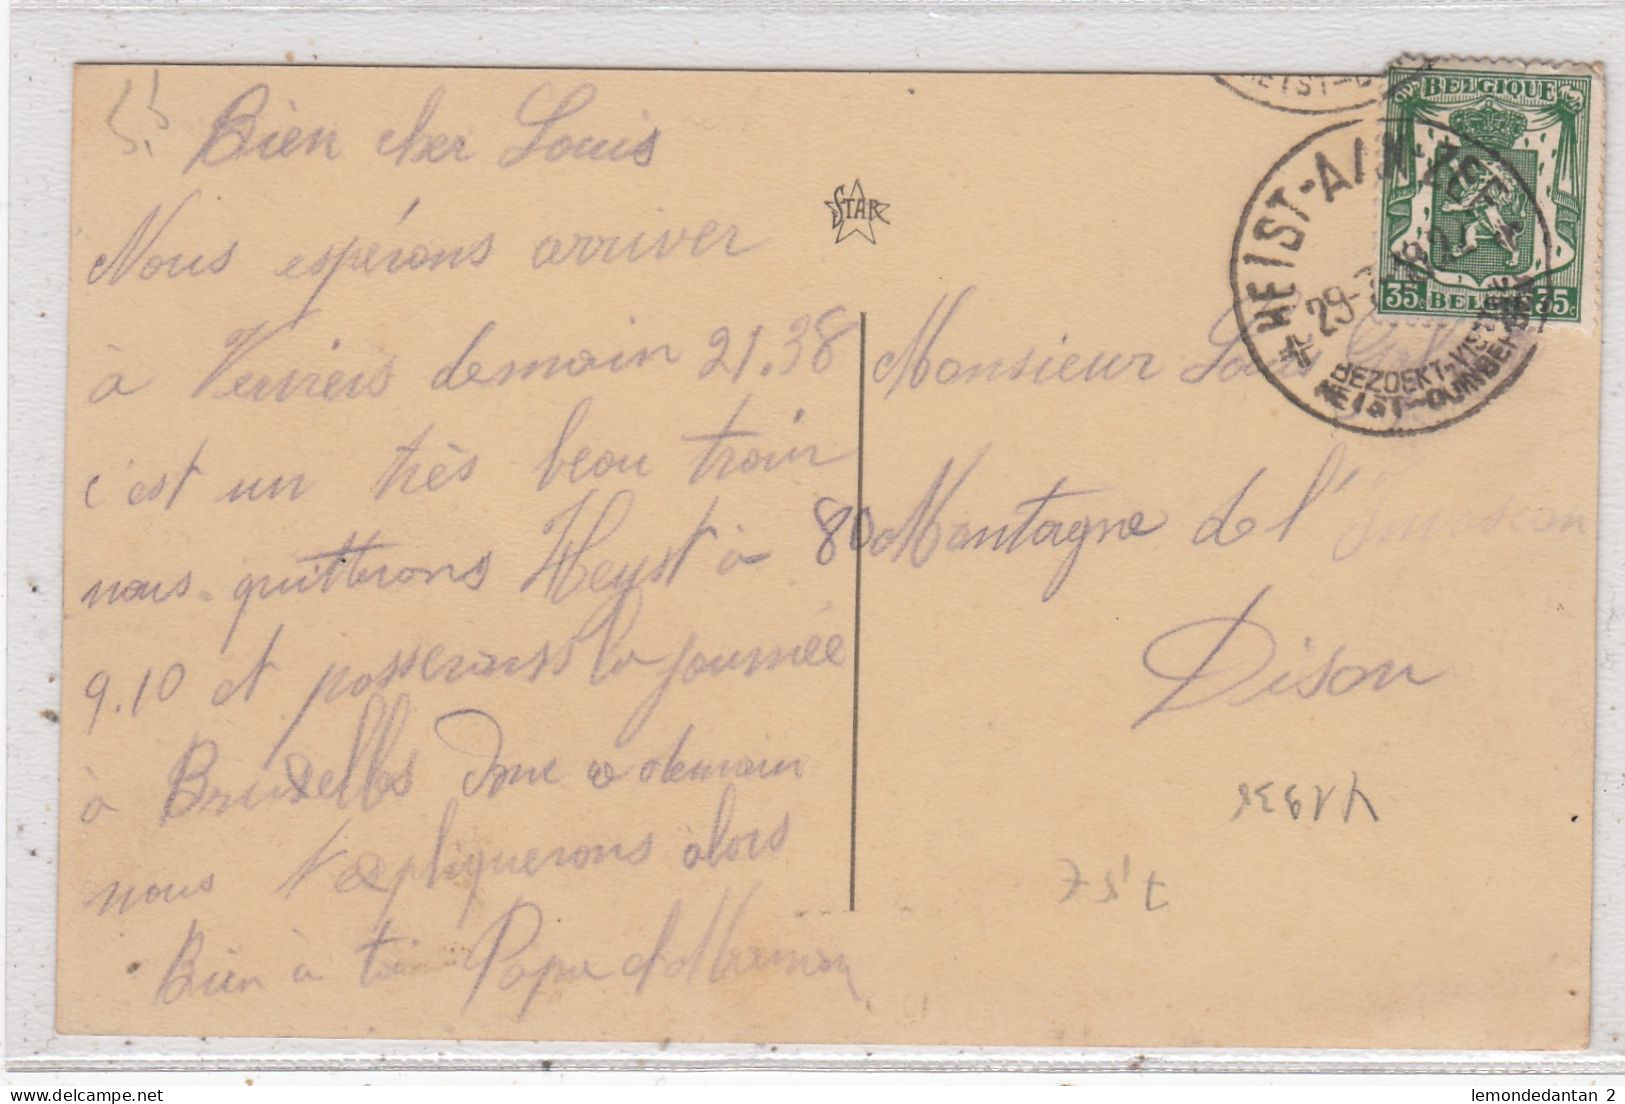 Bien cher Louis
Nous espérons arriver
à Verviers demain 21.38
c'est un très beau train
nous quitterons Heyst à
9.10 et passerons la journée
à Bruxelles donc a demain
nous t'expliquerons alors
Bien à toi Papa et Maman
STAR
Monsieur Louis
80 Montagne de l'
Dison
BELGIQUE
35c BELGIË 35c
HEIST-AAN-ZEE
29-
BEZOEKT-VISITEZ
HEIST-DUINBERGEN
HEIST-
41936
lemondedantan 2